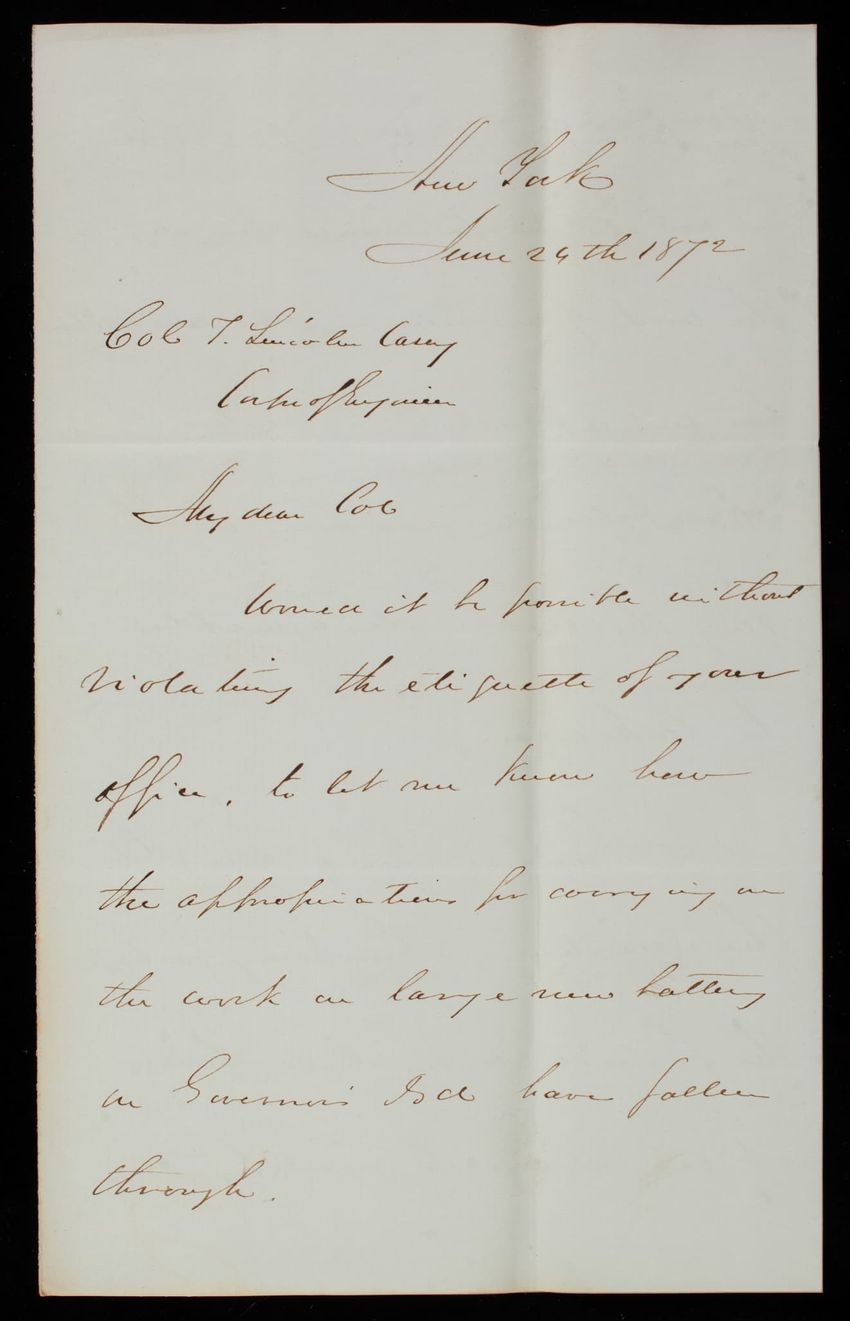 New York
June 24th 1872
Col T. Lincoln Casey
Corps of Engineers
My dear Col
Would it be possible without
violating the etiquette of your
office, to let me know how
the appropriations for carrying on
the work on large new battery
on Governor's Isd have fallen
through.